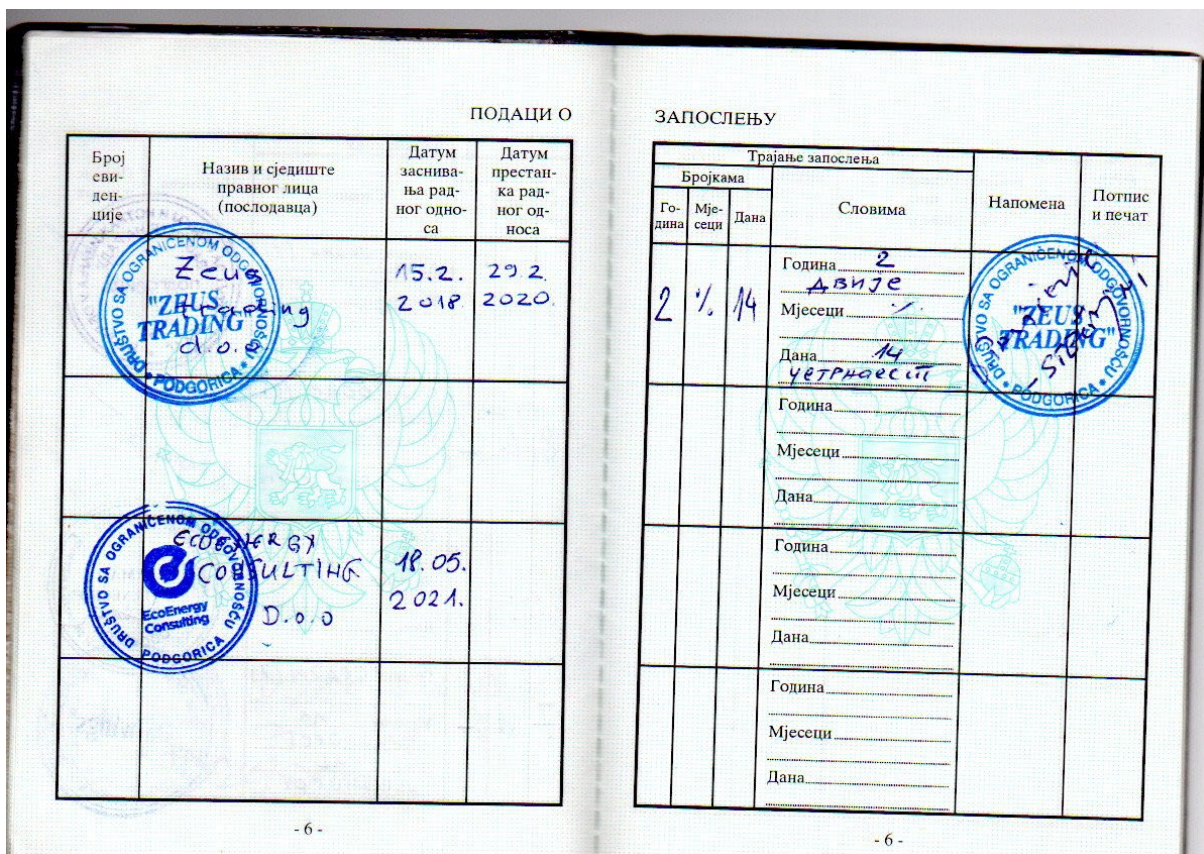 ПОДАЦИ О
ЗАПОСЛЕЊУ
Број
еви-
ден-
ције
Назив и сједиште
правног лица
(послодавца)
Датум
заснива-
ња рад-
ног одно-
са
Датум
престан-
ка рад-
ног од-
носа
Zeus
trading
d.o.o
DRUŠTVO SA OGRANIČENOM ODGOVORNOŠĆU
"ZEUS
TRADING"
PODGORICA
15.2.
2018
29.2
2020.
ECOENERGY
CONSULTING
D.o.o
DRUŠTVO SA OGRANIČENOM ODGOVORNOŠĆU
EcoEnergy
Consulting
PODGORICA
18.05.
2021.
- 6 -
Трајање запослења
Бројкама
Го-
дина
Мје-
сеци
Дана
Словима
Напомена
Потпис
и печат
2 % 14
Година 2
двије
Мјесеци
Дана 14
четрнаест
DRUŠTVO SA OGRANIČENOM ODGOVORNOŠĆU
"ZEUS
TRADING"
PODGORICA
Година
Мјесеци
Дана
Година
Мјесеци
Дана
Година
Мјесеци
Дана
- 6 -